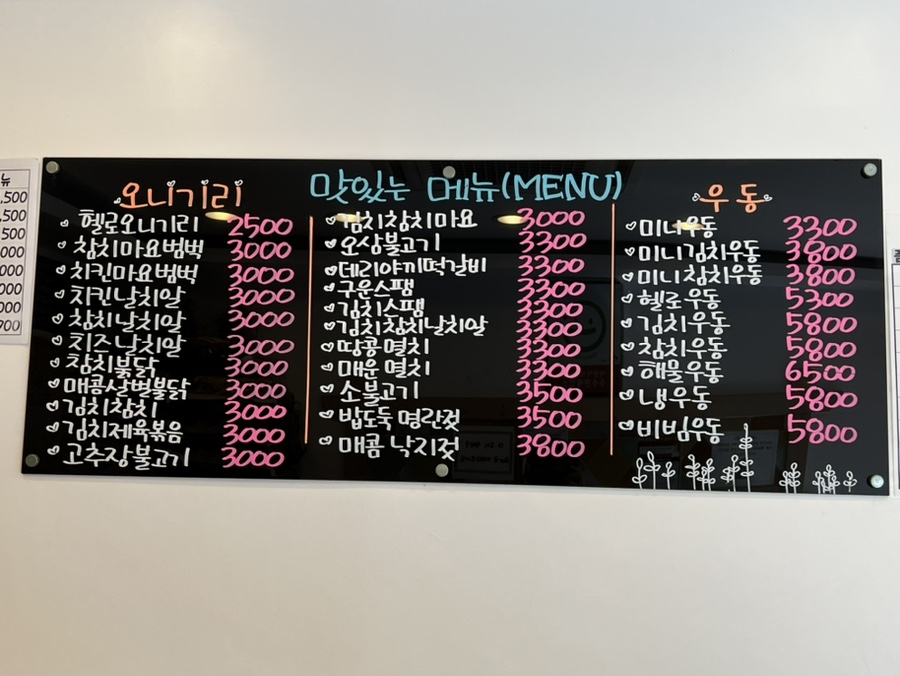 맛있는 메뉴(MENU)
오니기리
헬로오니기리 2500
참치마요범벅 3000
치킨마요범벅 3000
치킨날치알 3000
참치날치알 3000
치즈날치알 3000
참치불닭 3000
매콤살벌불닭 3000
김치참치 3000
김치제육볶음 3000
고추장불고기 3000
김치참치마요 3000
오삼불고기 3300
데리야끼떡갈비 3300
구운스팸 3300
김치스팸 3300
김치참치날치알 3300
땅콩멸치 3300
매운멸치 3300
소불고기 3500
밥도둑명란젓 3500
매콤낙지젓 3800
우동
미니우동 3300
미니김치우동 3800
미니참치우동 3800
헬로우동 5300
김치우동 5800
참치우동 5800
해물우동 6500
냉우동 5800
비빔우동 5800
뉴
,500
,500
500
000
000
000
000
900